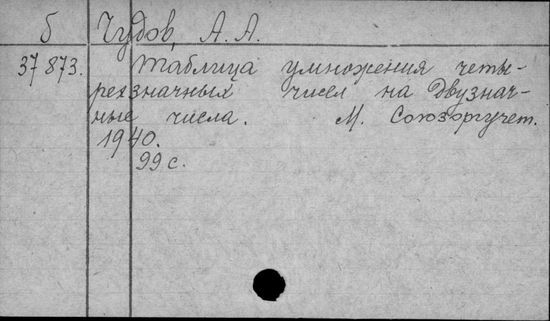 Б Чудов, А. А.
37873. Таблица умножения четы-
рехзначных чисел на двузнач-
ные числа. М. Союзоргучет.
1940.
99 с.